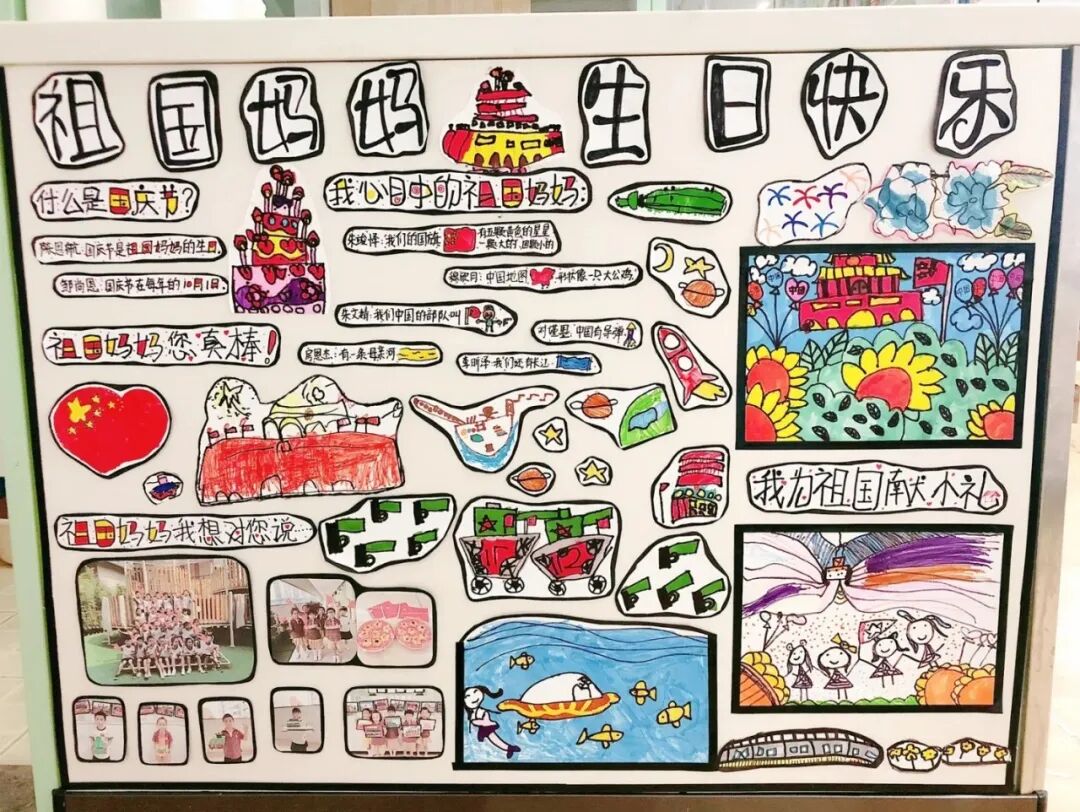 祖国妈妈生日快乐
什么是国庆节?
陈恩航:国庆节是祖国妈妈的生日.
邹尚恩:国庆节在每年的10月1日.
我心目中的祖国妈妈:
我们的国旗 有五颗黄色的星星
一颗大的,四颗小的
中国地图 形状像一只大公鸡.
朱文楠:我们中国的部队叫
中国有导弹
有一条母亲河
我们还有长江
祖国妈妈您真棒!
祖国妈妈我想对您说…
中国
中国
中国
我为祖国献小礼